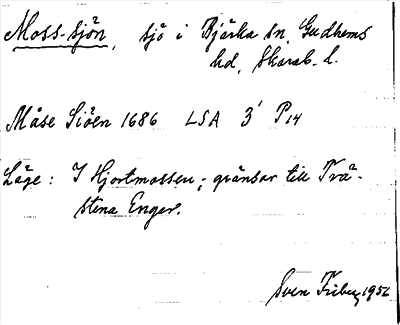 Moss-sjön, sjö i Bjärka sn, Gudhems
hd, Skarab. l.
Måse Siöen 1686 LSA 3' P14
Läge: I Hjortmossen; gränsar till Trä-
stena Enger.
Sven Friberg 1956